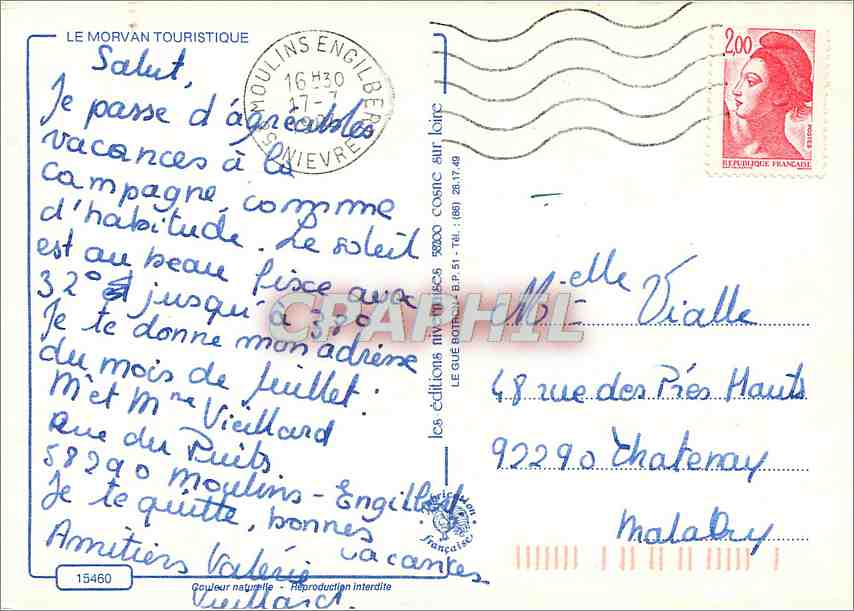 LE MORVAN TOURISTIQUE
Salut,
Je passe d'agréables
vacances à la
campagne, comme
d'habitude. Le soleil
est au beau fixe avec
32° et jusqu'à 38°.
Je te donne mon adresse
du mois de Juillet :
Mr et Mme Vieillard
Rue du Puits
58290 Moulins-Engilbert
Je te quitte, bonnes
vacances
Amitiers Valérie
Vieillard.
15460
Couleur naturelle - Reproduction interdite
MOULINS ENGILBERT
16H30
17-7
58 NIEVRE
les éditions nivernaises 58200 cosne sur loire
LE GUÉ BOTRON - B.P. 51 - Tél. : (86) 28.17.49
fabrication française
CPAPHIL
2,00
POSTES
REPUBLIQUE FRANÇAISE
Melle Vialle
48 rue des Prés Hauts
92290 Chatenay
Malabry